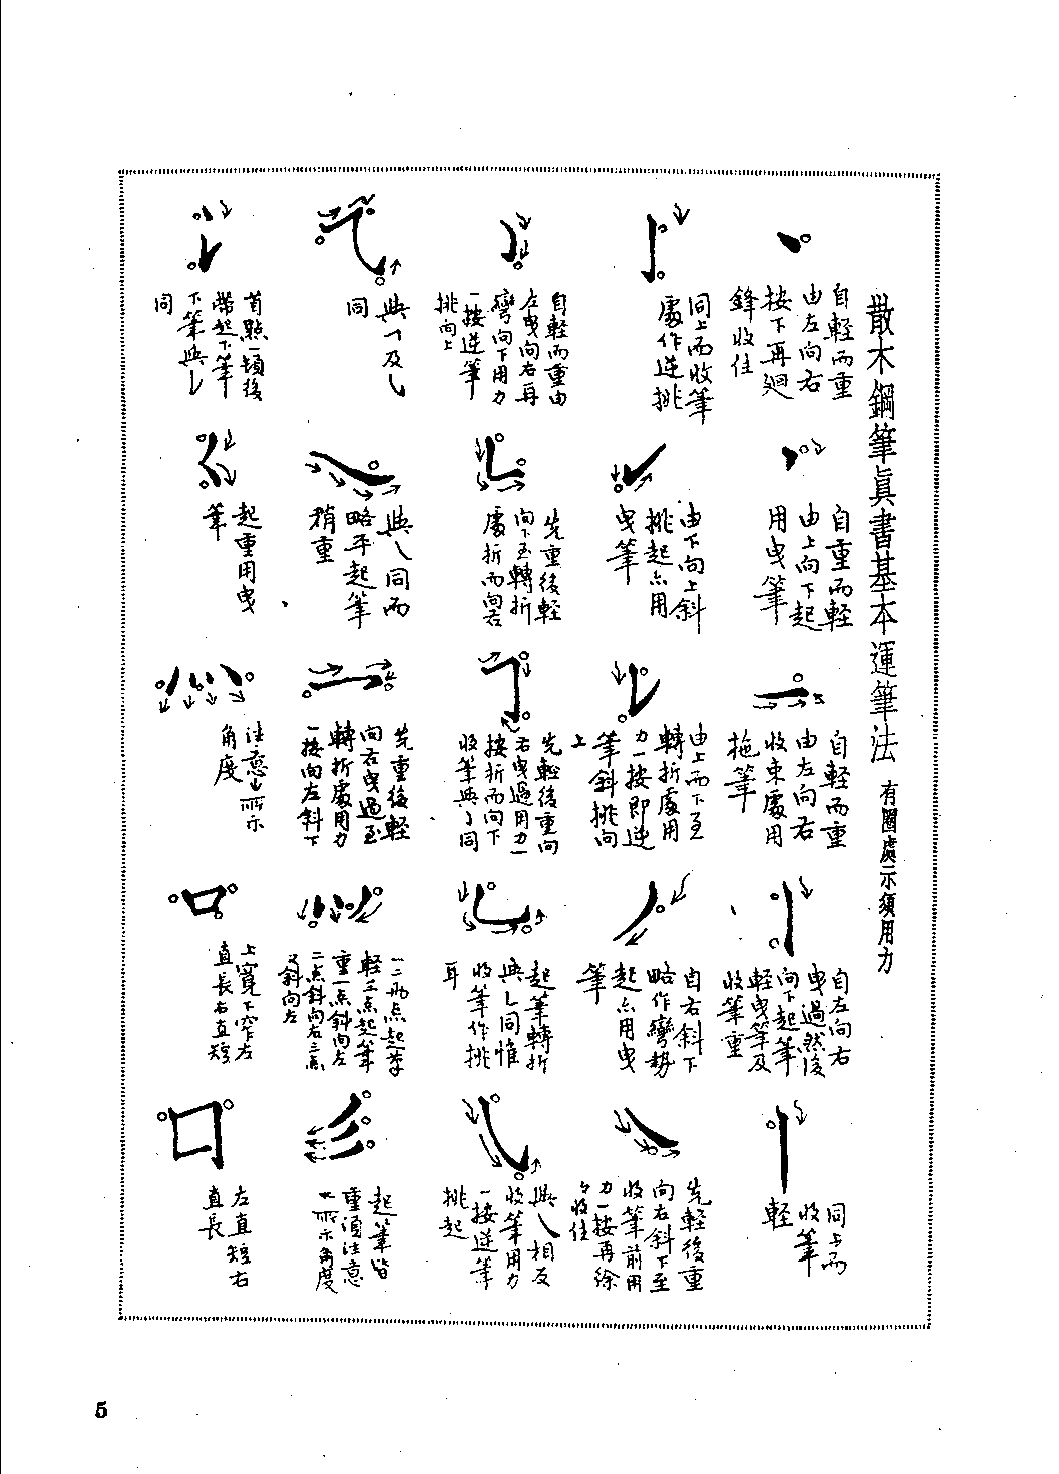 散木鋼筆眞書基本運筆法 有圈處示須用力
自輕而重
由左向右
按下再廻
鋒收住
自重而輕
由上向下起
用曳筆
自輕而重
由左向右
收束處用
拖筆
自左向右
曳過然後
向下起筆
輕曳筆及
收筆重
同上而
收筆
輕
同上而收筆
處作逆挑
由下向上斜
挑起亦用
曳筆
由上而下至
轉折處用
力一按即逆
筆斜挑向
上
自右斜下
略作彎勢
起亦用曳
筆
先輕後重
向右斜下至
收筆前用
力一按再徐
々收住
自輕而重由
左曳向右再
彎向下用力
一按逆筆
挑向上
先重後輕
向下至轉折
處折而向右
先輕後重向
右曳過用力一
按折而向下
收筆與亅同
起筆轉折
與乚同惟
收筆作挑
耳
與乀相反
收筆用力
一按逆筆
挑起
與㇇及㇂
同
與乀同而
略平起筆
稍重
先重後輕
向右曳過至
轉折處用力
一按向左斜下
一二兩点起筆
輕三点起筆
重一点斜向左
二点斜向右三点
又斜向左
起筆皆
重須注意
丶所示角度
首點一頓後
帶起下筆
下筆與㇙
同
起重用曳
筆
注意丶所示
角度
上寬下窄左
直長右直短
左直短右
直長
5